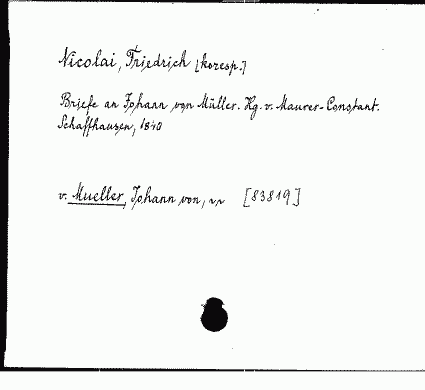 Nicolai, Friedrich [koresp.]
Briefe an Johann von Müller. Hg. v. Maurer-Constant.
Schaffhausen, 1840
v. Mueller, Johann von, [83819]